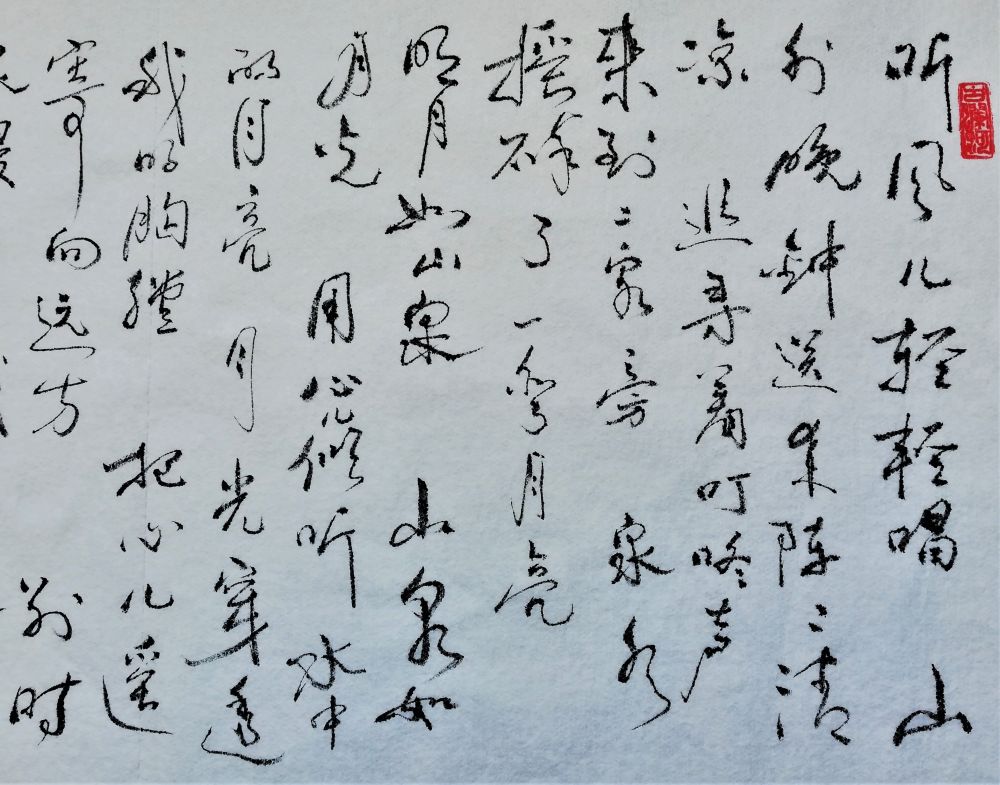 听风儿轻轻唱 山
外晚钟送来阵々清
凉 追寻着叮咚声
来到二泉旁 泉水
摇碎了一弯月亮
明月如山泉 山泉如
月光 用心倾听 水中
的月亮 月光穿透
我的胸膛 把心儿遥
寄向远方 别时